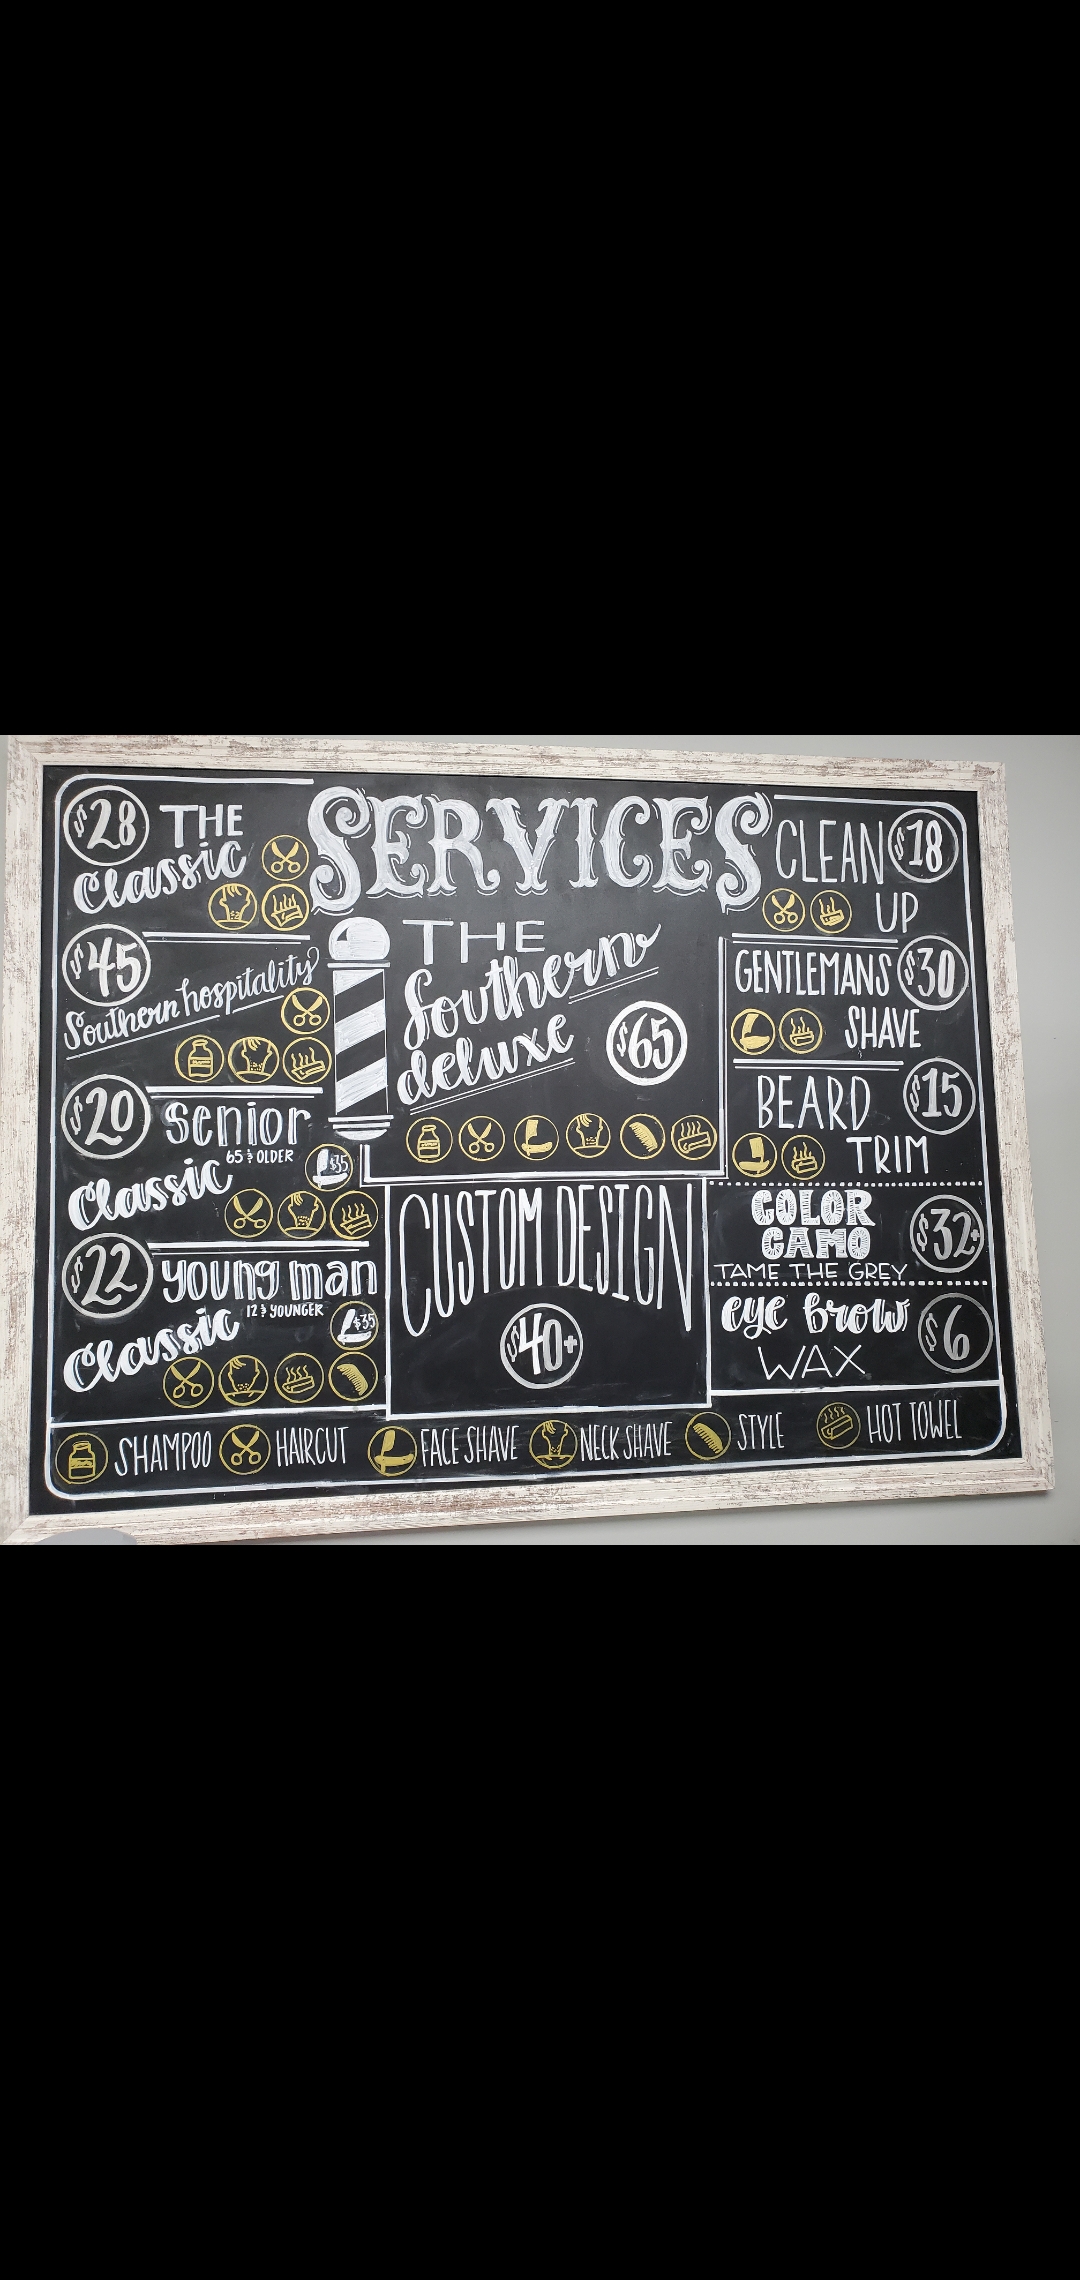 SERVICES
$28 THE
Classic
$45
Southern hospitality
$20 senior
65 & OLDER
Classic
$35
$22 young man
12 & YOUNGER
Classic
$35
THE
Southern
deluxe
$65
CUSTOM DESIGN
$40+
CLEAN $18
UP
GENTLEMANS $30
SHAVE
BEARD $15
TRIM
COLOR
CAMO
$32+
TAME THE GREY
eye brow
WAX
$6
SHAMPOO HAIRCUT FACE SHAVE NECK SHAVE STYLE HOT TOWEL